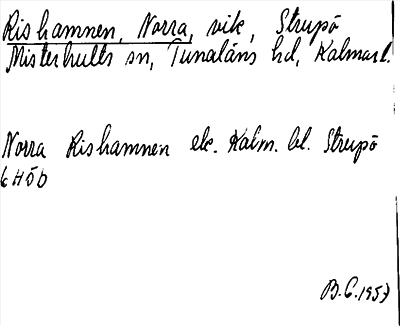 Rishamnen, Norra, vik, Strupö
Misterhults sn, Tunaläns hd, Kalmar l.
Norra Rishamnen ek. Kalm. bl. Strupö
6 H 5 b
B.G. 1957